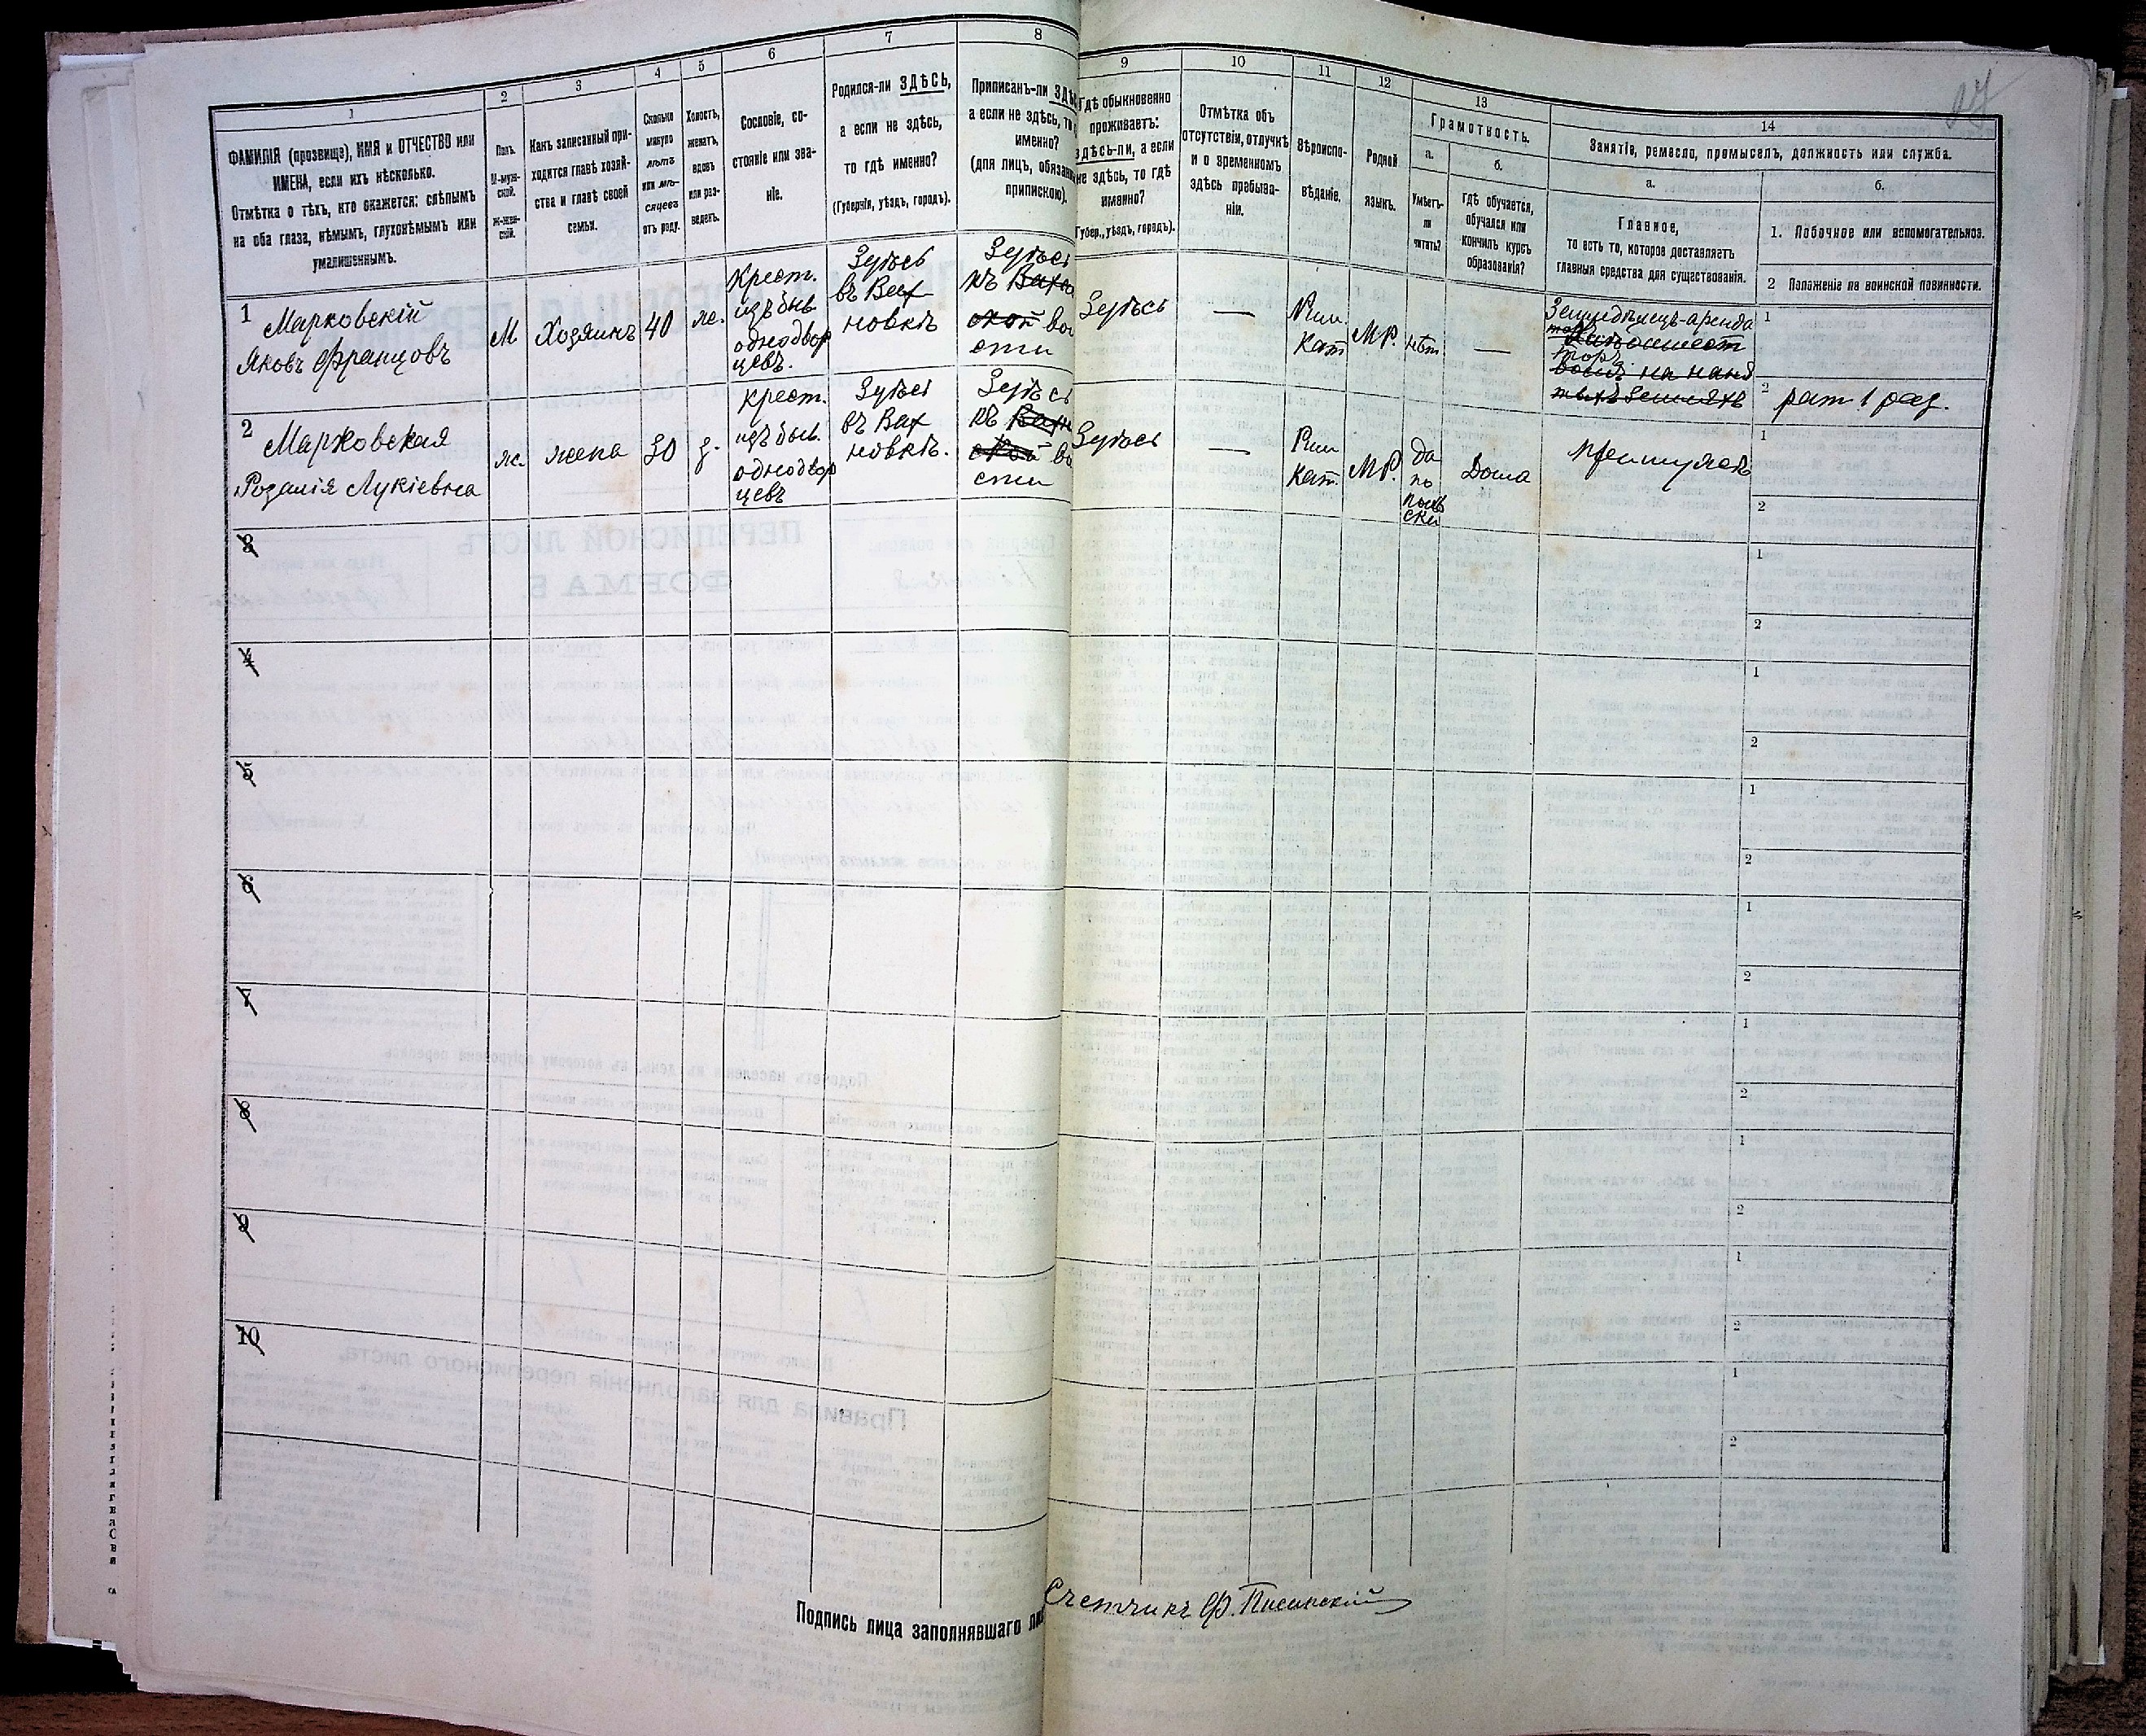 27
1
2
3
4
5
6
7
8
9
10
11
12
13
14
ФАМИЛІЯ (прозвище), ИМЯ и ОТЧЕСТВО или
ИМЕНА, если ихъ нѣсколько.
Отмѣтка о тѣхъ, кто окажется: слѣпымъ
на оба глаза, нѣмымъ, глухонѣмымъ или
умалишеннымъ.
Полъ.
М-муж-
ской.
Ж-жен-
скій.
Какъ записанный при-
ходится главѣ хозяй-
ства и главѣ своей
семьи.
Сколько
минуло
лѣтъ
или мѣ-
сяцевъ
отъ роду.
Холостъ,
женатъ,
вдовъ
или раз-
веденъ.
Сословіе, со-
стояніе или зва-
ніе.
Родился-ли ЗДѢСЬ,
а если не здѣсь,
то гдѣ именно?
(Губернія, уѣздъ, городъ).
Приписанъ-ли ЗДѢ
а если не здѣсь, то
именно?
(для лицъ, обязан
припискою).
Гдѣ обыкновенно
проживаетъ:
здѣсь-ли, а если
не здѣсь, то гдѣ
именно?
Губер., уѣздъ, городъ).
Отмѣтка объ
отсутствіи, отлучкѣ
и о временномъ
здѣсь пребыва-
ніи.
Вѣроиспо-
вѣданіе.
Родной
языкъ.
Грамотность.
а.
Умѣетъ-
ли
читать?
б.
Гдѣ обучается,
обучался или
кончилъ курсъ
образованія?
Занятіе, ремесло, промыселъ, должность или служба.
а.
Главное,
то есть то, которое доставляетъ
главныя средства для существованія.
б.
1. Побочное или вспомогательное.
2 Положеніе по воинской повинности.
1
Марковскій
Яковъ Францовъ
М
Хозяинъ
40
ж.
Крест.
изъ быв
однодвор
цевъ.
Здѣсь
въ Вах
новкѣ
Здѣсь
къ Вахн
ской во
сти
Здѣсь
—
Рим
Кат
МР.
нѣт
—
Земледѣлецъ-аренда
торъ
1
2 рат 1 раз.
2
Марковская
Розалія Лукіевна
ж.
жена
30
з.
крест.
изъ быв.
однодвор
цевъ
Здѣсь
въ Вах
новкѣ.
Здѣсь
къ Вахн
ской во
сти
Здѣсь
—
Рим
Кат.
МР.
да
по
поль
ски
Дома
при мужѣ
1
2
3
1
2
4
1
2
5
1
2
6
1
2
7
1
2
8
1
2
9
1
2
10
1
2
Подпись лица заполнявшаго ли
Счетчикъ Ф.